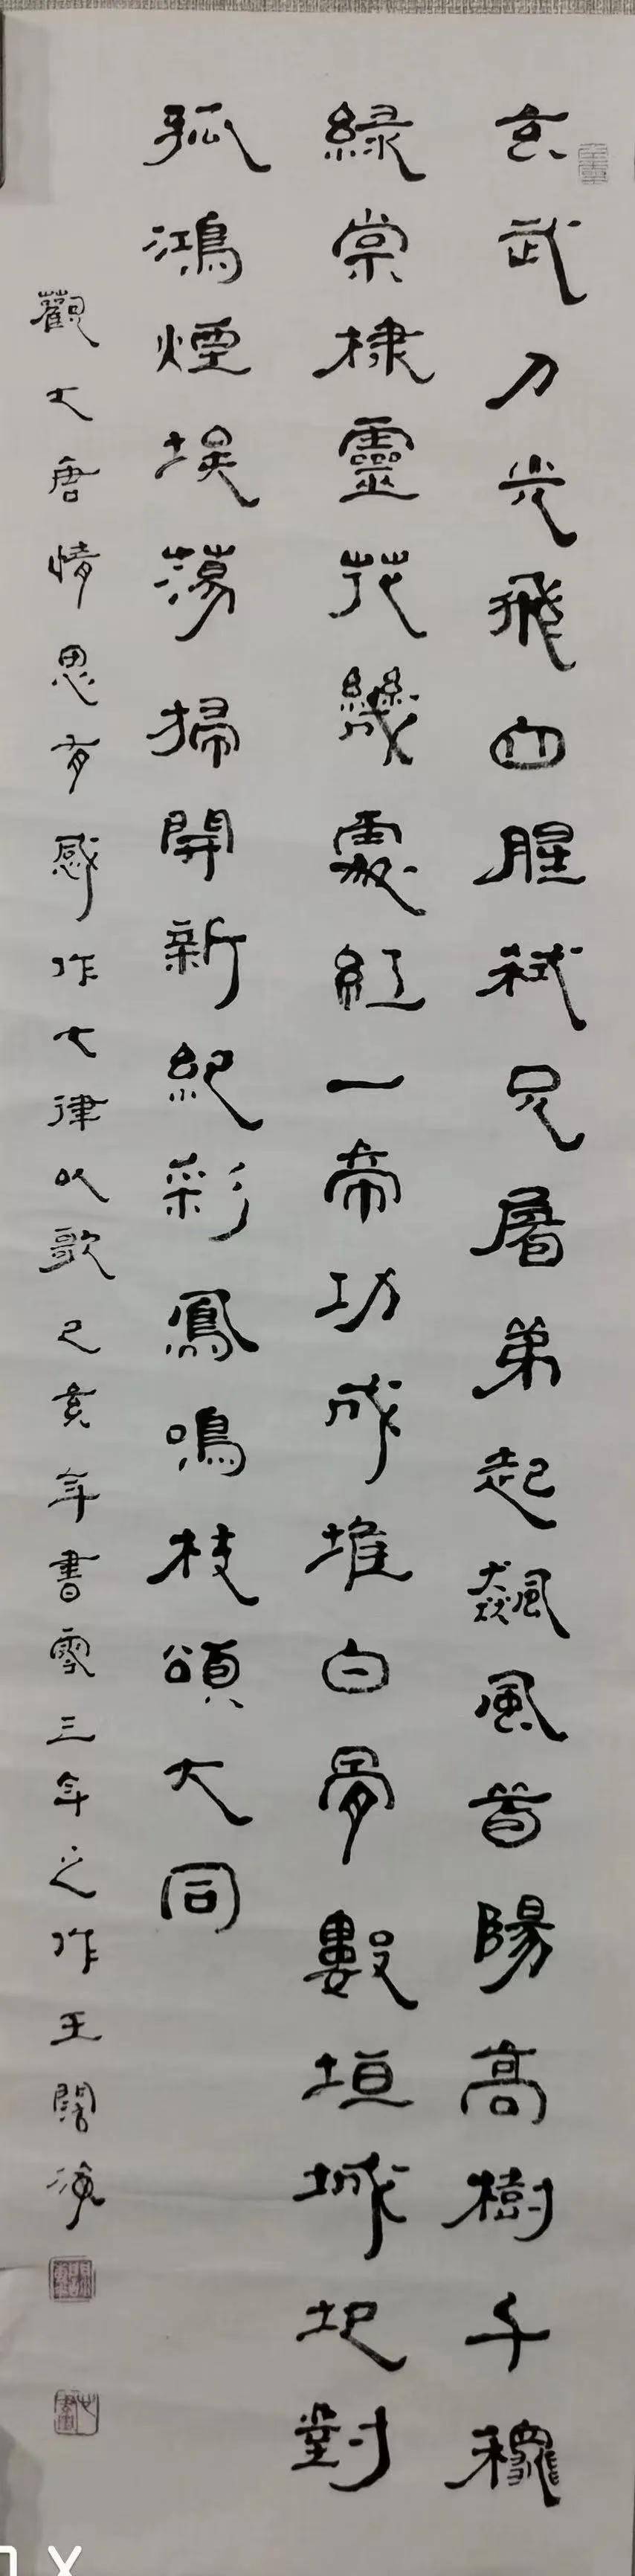 玄武刀光飛血腥弑兄屠弟起飆風首陽高樹千穐
綠棠棣靈花幾處紅一帝功成堆白骨數垣城圮對
孤鴻煙埃蕩掃開新紀彩鳳鳴枝頌大同
觀大唐情思有感作七律以歌己亥年書雪三年之作王闊海